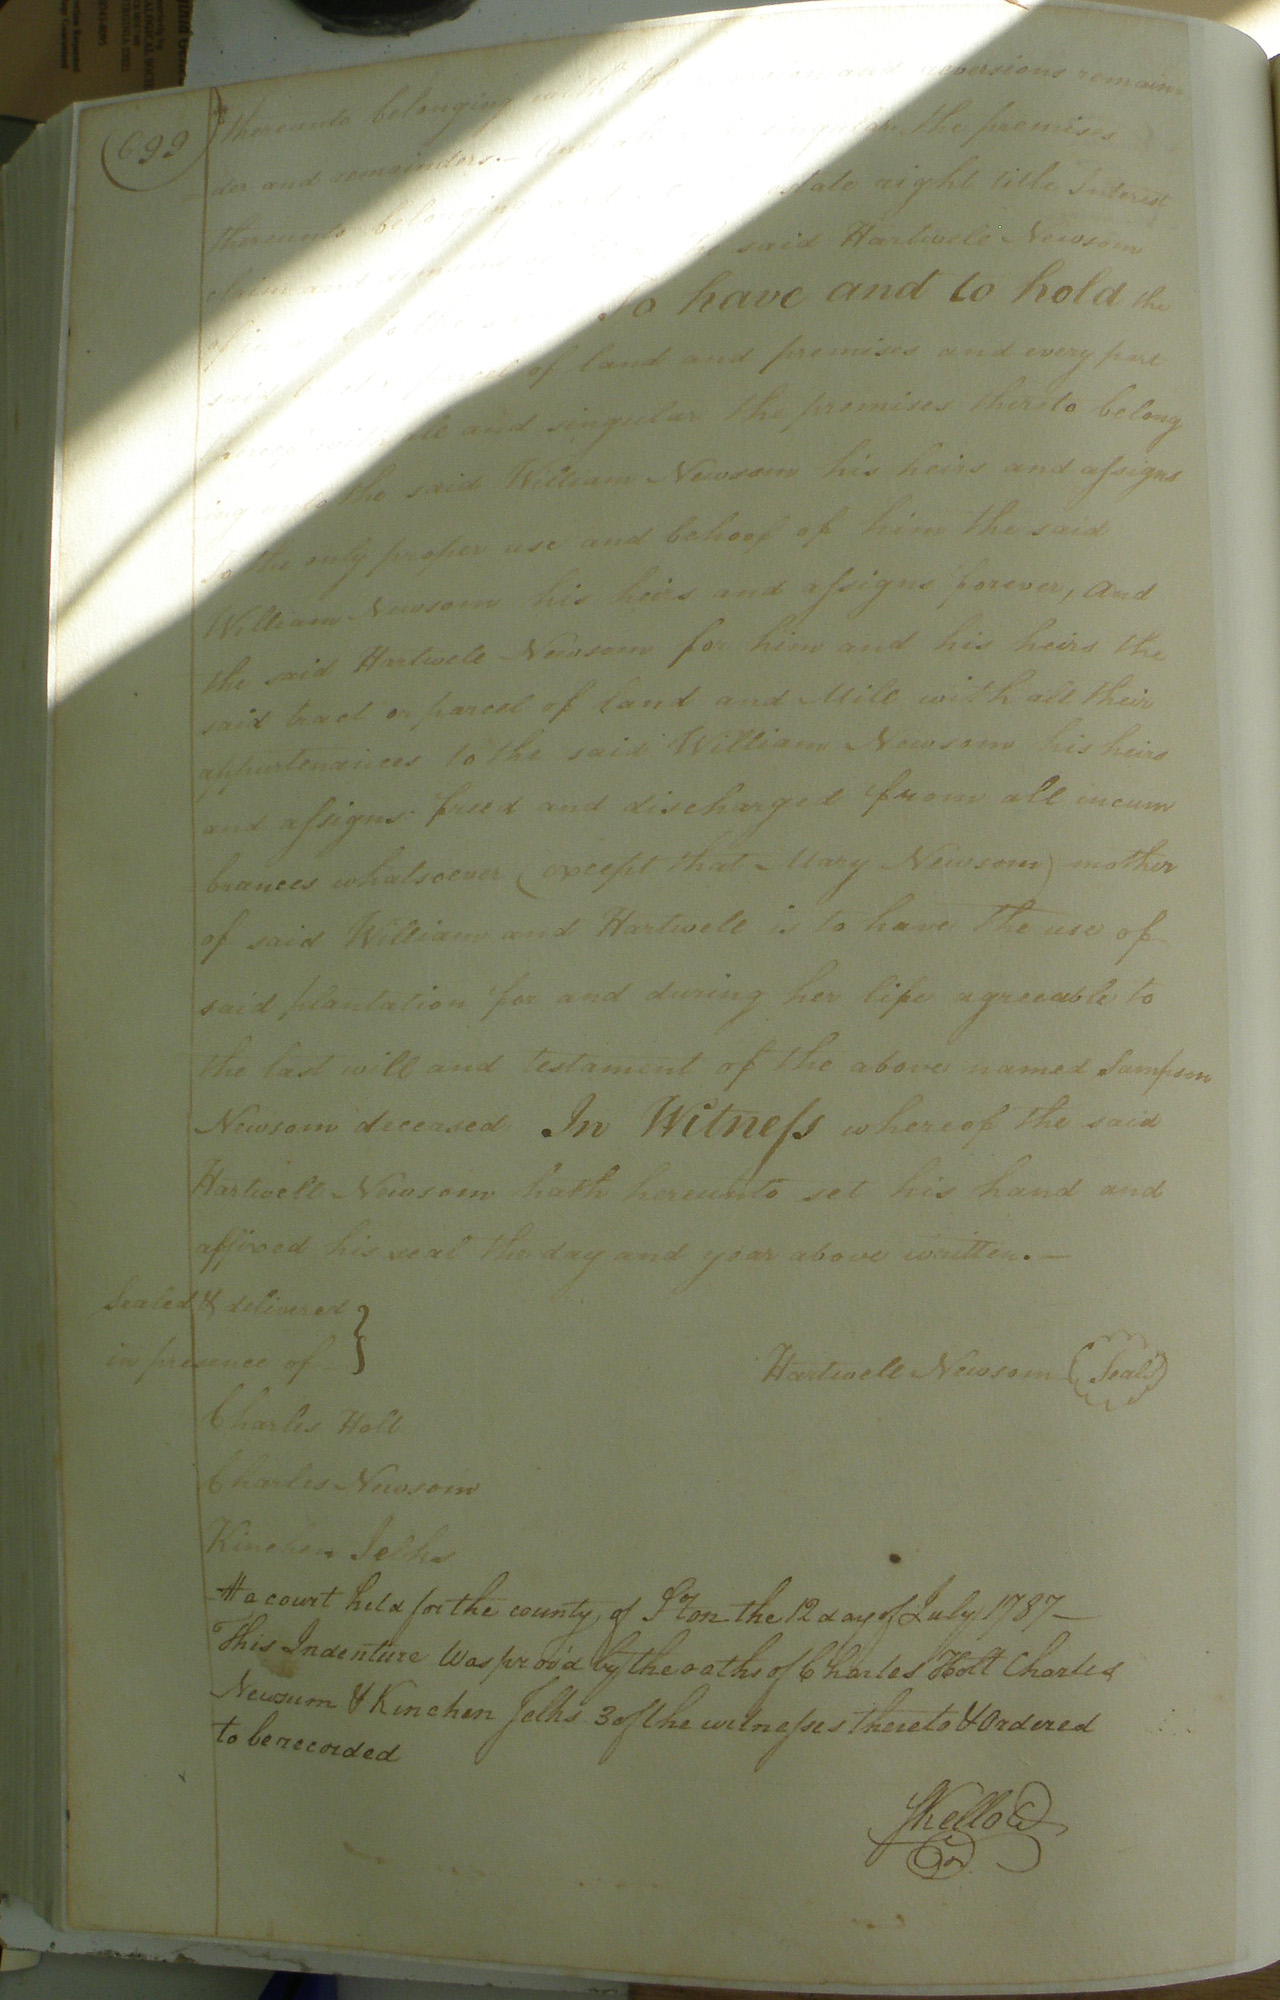 699
thereunto belonging with reversions remain
der and remainders. And all singular the premises
thereunto belonging right title Interest
said Hartwell Newsom
To have and to hold the
said of land and premises and every part
thereof with all and singular the premises thereto belong
ing unto the said William Newsom his heirs and assigns
to the only proper use and behoof of him the said
William Newsom his heirs and assigns forever, And
the said Hartwell Newsom for him and his heirs the
said tract or parcel of land and Mill with all their
appurtenances to the said William Newsom his heirs
and assigns freed and discharged from all incum
brances whatsoever (except that Mary Newsom) mother
of said William and Hartwell is to have the use of
said plantation for and during her life agreeable to
the last will and testament of the above named Sampson
Newsom deceased. In Witness whereof the said
Hartwell Newsom hath hereunto set his hand and
affixed his seal the day and year above written.—
Sealed & delivered
in presence of
Hartwell Newsom (Seal)
Charles Holt
Charles Newsom
Kinchen Jelks
At a court held for the county of Sºton the 12 day of July 1787—
This Indenture Was prov'd by the oaths of Charles Holt Charles
Newsum & Kinchen Jelks 3 of the witnesses thereto & Ordered
to be recorded